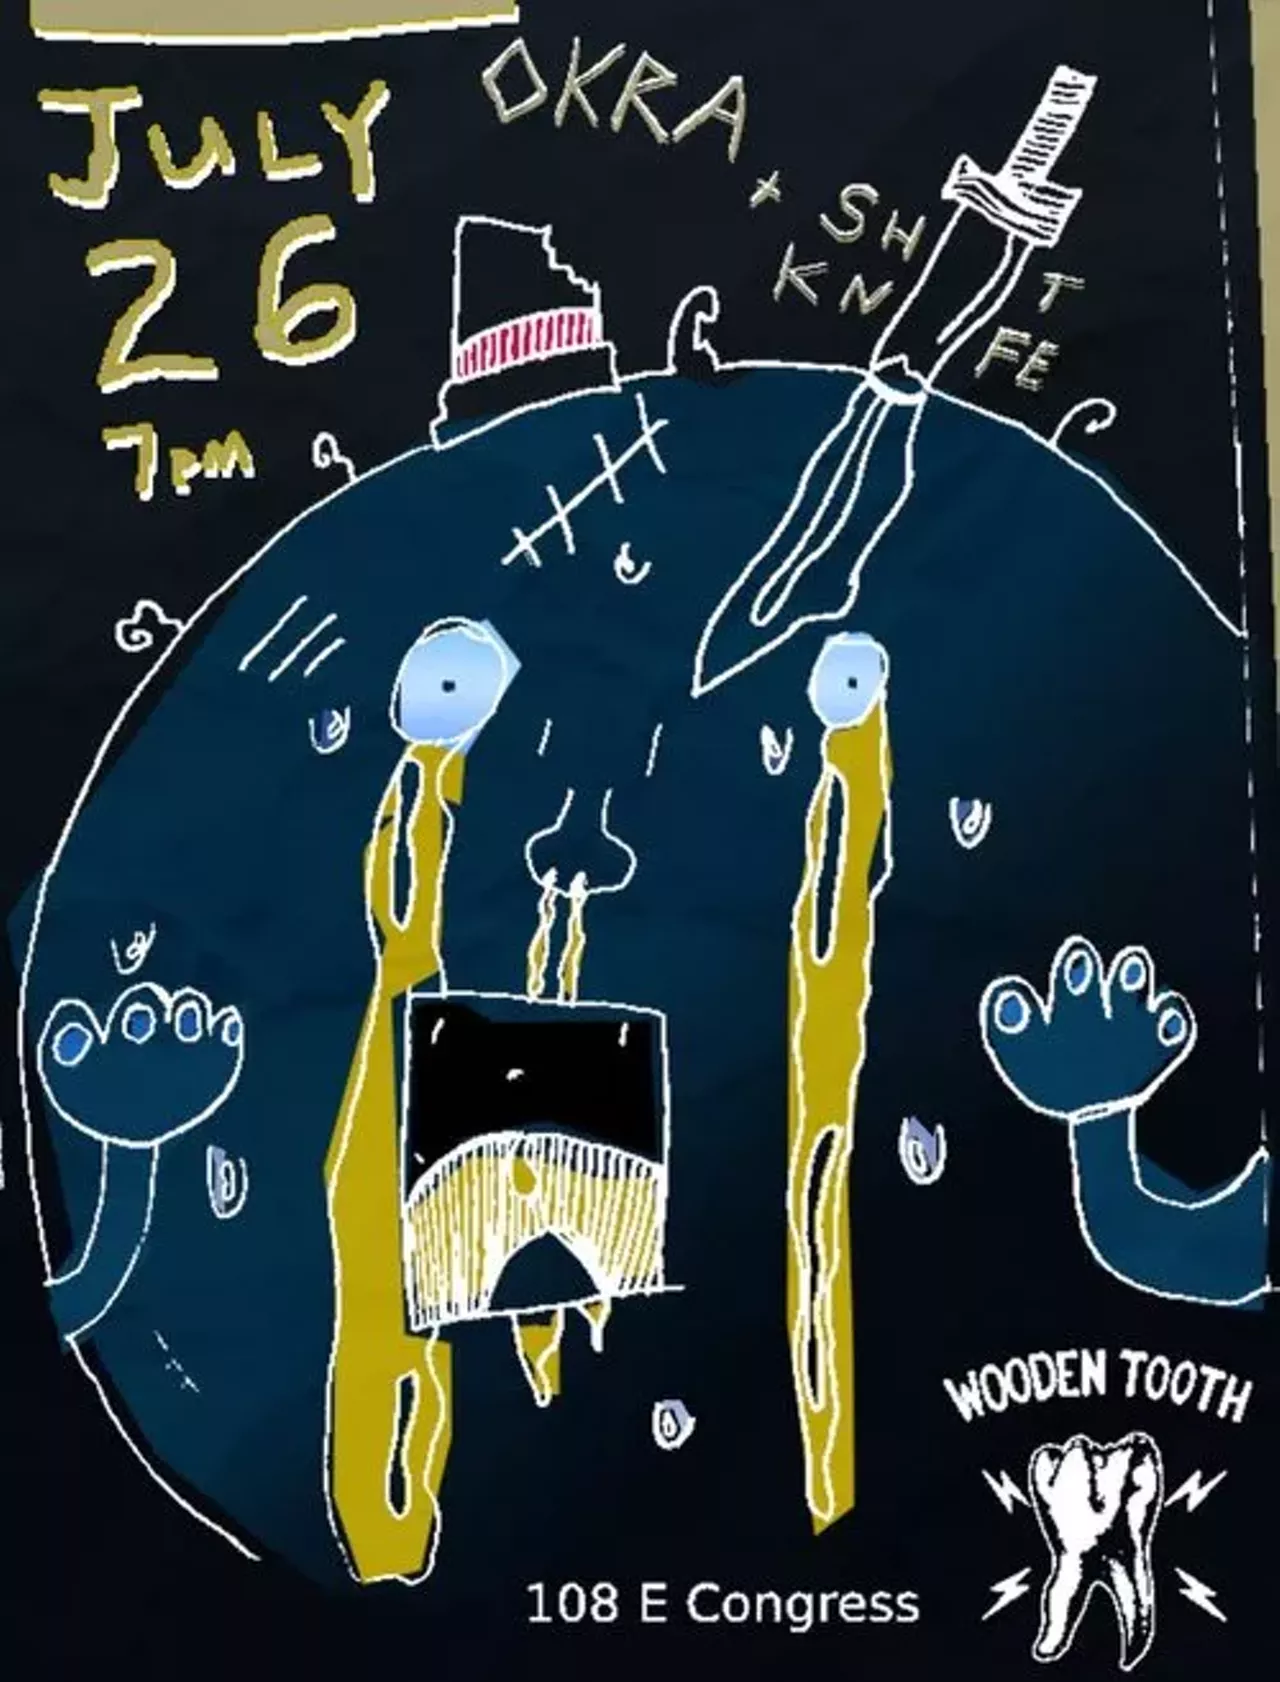 JULY
26
7PM
OKRA
x SH T
KN FE
WOODEN TOOTH
108 E Congress